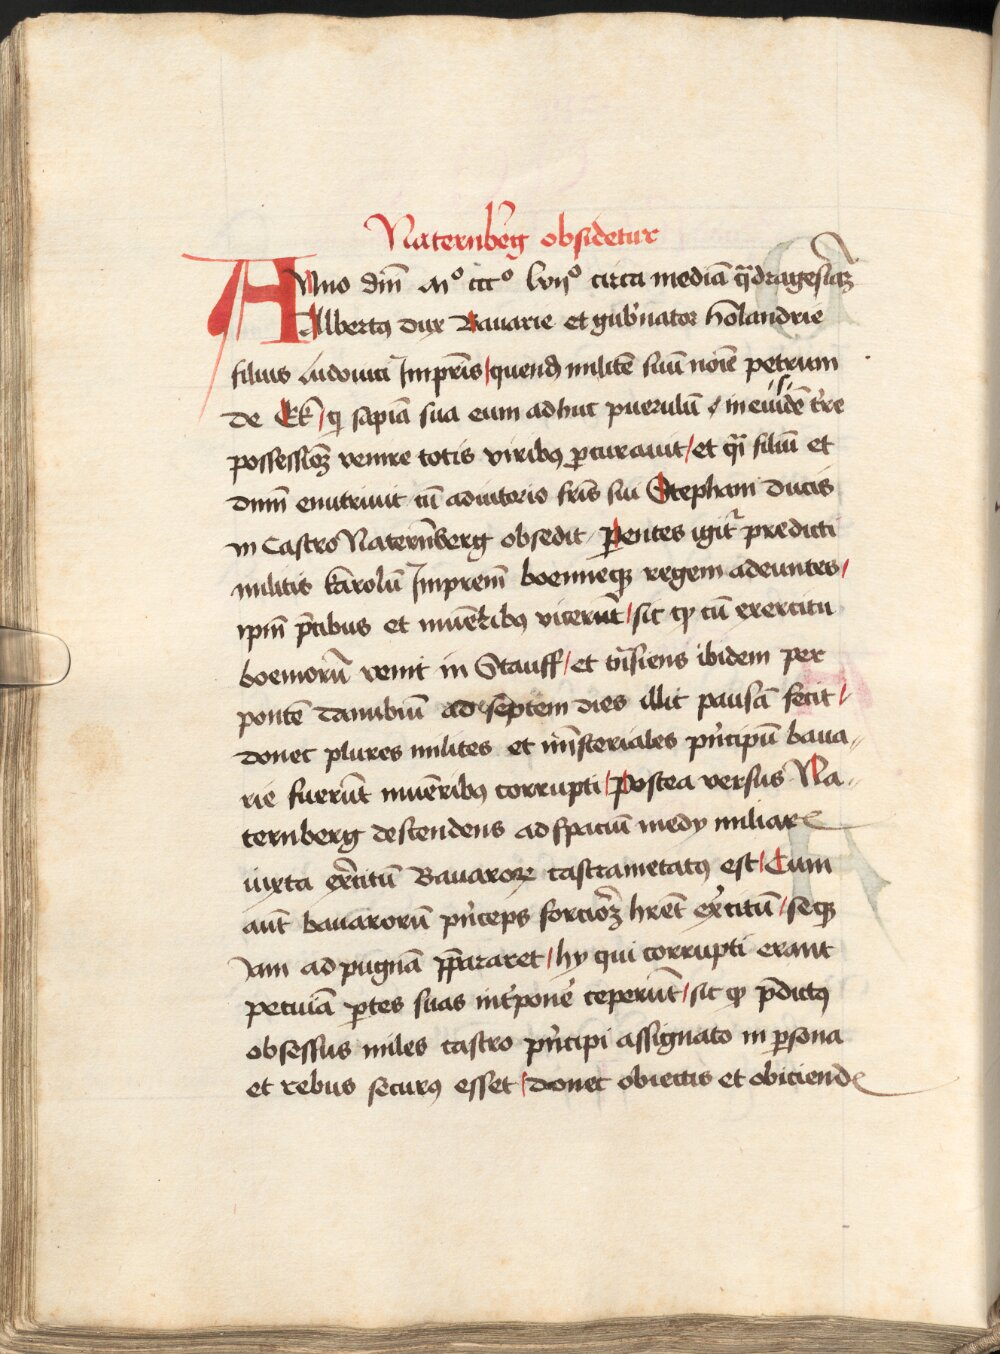 Naternb̄erg obsidetur
Anno dm̄ mo ccco lviio circa mediā qͣdragesimā
Albertꝰ dux Bavarie et gub'nator hōlandrie
filius Ludovici Imp̄ris / quendā militē suū noīe petrum
de Ekk̄ / qͥ sapīa sua eum adhuc puerulū in eiusdē tr̄re
possessiōeꝫ venire totis viribꝰ ꝓcuravit / et qͣsi filiū et
dnm̄ enutrivit cū adiutorio fr̄is sui Stephani ducis
in Castro Natern̄berg obsedit Parentes igit᷑ predicti
militis karolū Imp̄rem boemieqꝫ regem adeuntes /
ipm̄ p̄cibus et mun̄eribꝰ vicerūt / sic qͥ cū exercitu
boemorū venit in Stauff / et tn̄siens ibidem per
pontē danubiū ad septem dies illic pausā fecit /
donec plures milites et mīnisteriales pͥncipū bava„
rie fuerūt mun̄eribꝰ corrupti / Postea versus Na„
ternberg descendens ad spaciū medy miliarꝭ
iuxta ex̄ercitū Bavaroꝝ castrametatꝰ est / Cum
aūt bavarorū pͥnceps forcioreꝫ hr̄et ex̄ercitū / seqꝫ
iam ad pugnā p̄pararet / hy qui corrupti erant
pecuīa ꝑtes suas int'pon'e ceperūt / sic qͥ p̄dictꝰ
obsessus miles castro pͥncipi assignato in ꝑsona
et rebus securꝰ esset / donec obiectis et obiciendꝭ